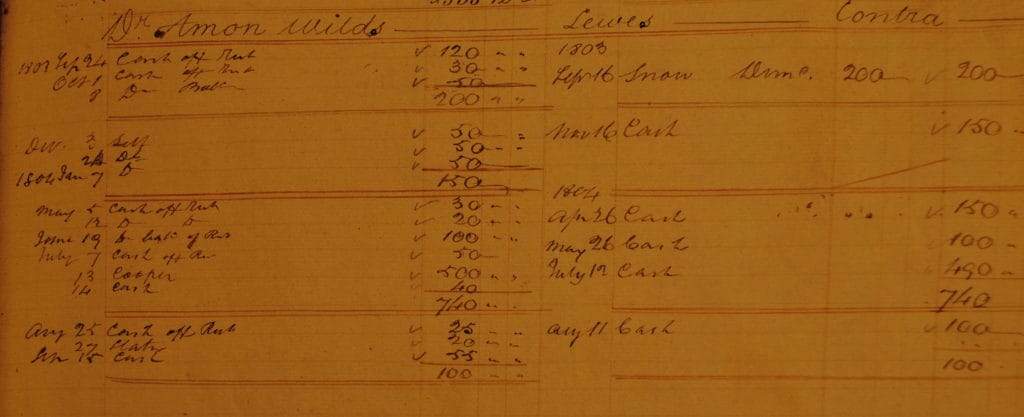 Dr Amon Wilds Lewes Contra
1803 Sep 24 Cash off Rect 120 " "
Oct 1 Cash off Rect 30 " "
8 Do 50
200 " "
1803
Sep 16 Snow Dunc. 200 200
Dec 2 Self 50 "
24 Do 50 "
1804 Jan 7 D 50
150
Nov 16 Cash 150
May 5 Cash off Rect 30 " "
12 D D 20 " "
June 19 Do bale of Rect 100 " "
July 7 Cash off Rec 50
13 Cooper 500 " "
14 Cash 40
740 " "
1804
Apr 26 Cash 150 "
May 26 Cash 100 "
July 12 Cash 490 "
740
Aug 25 Cash off Rect 25 " "
27 20 " "
Sep 15 Cash 55 " "
100 " "
Aug 11 Cash 100
100